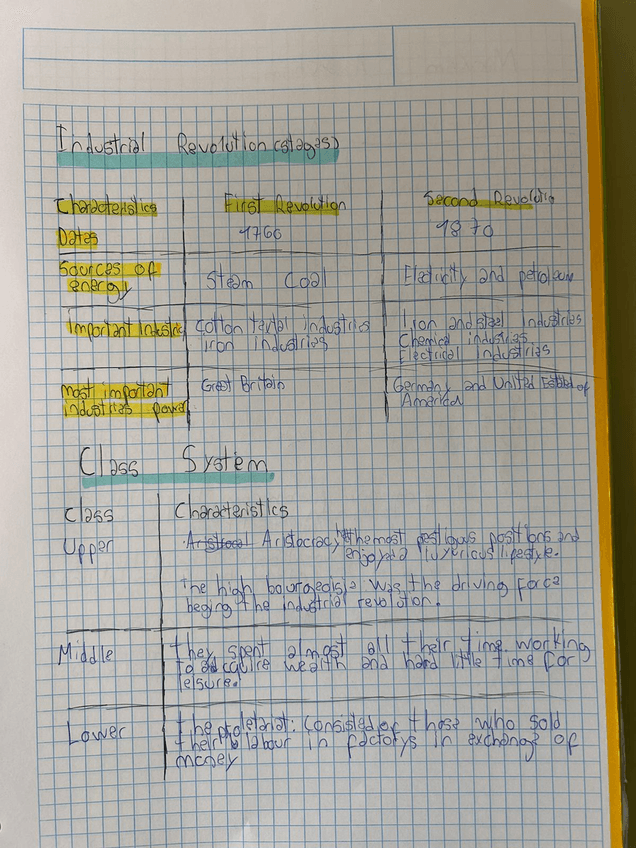 Industrial Revolution (stages)
Characteristics First Revolution Second Revolutio
Dates 1760 1870
Sources of
energy Steam Coal Electricity and petroleum
Important Industrie cotton textel industries
iron industries
Iron and steel Industries
Chemical industries
Electrical industries
most important
industries power
Great Britain
Germany and United Estated of
America
Class System
Class Characteristics
Upper Aristocracy the most pestigous positions and
enjoyed luxurious lifestyle.
The high bourgeoisie was the driving force
beging the industrial revolution.
Middle they spent almost all their time working
to adcquire wealth and hard little time for
leisure.
Lower the proletariat: consisted of those who sold
their labour in factorys in exchange of
money